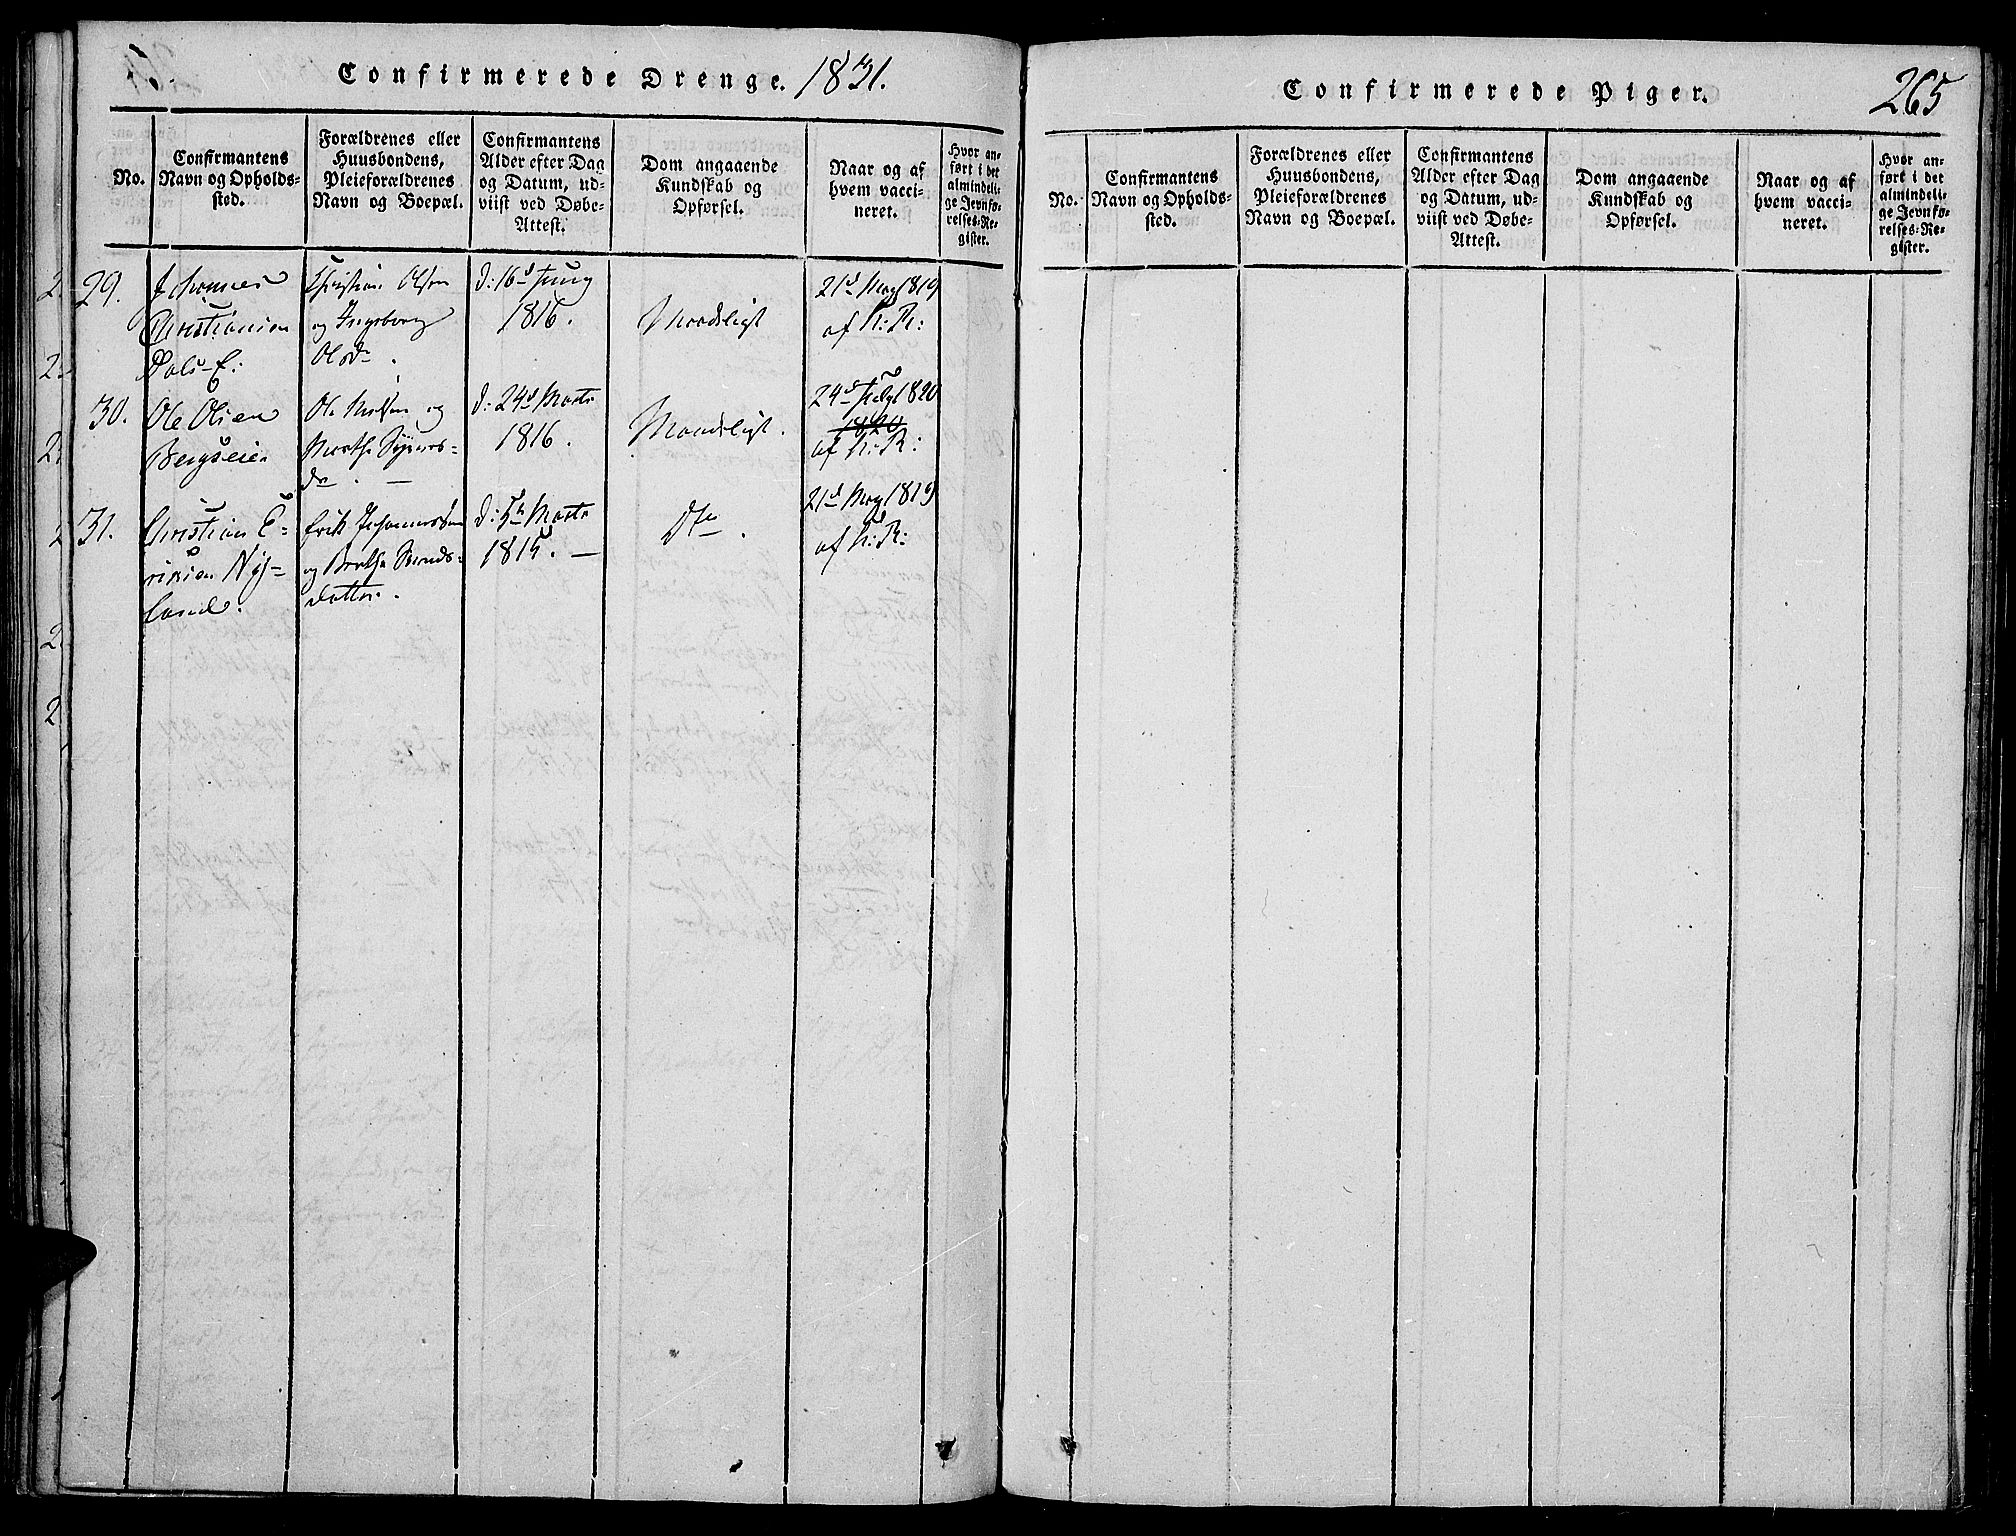 Confirmerede Drenge. 1831.
No.
Confirmantens
Navn og Opholds-
sted.
Forældrenes eller
Huusbondens,
Pleieforældrenes
Navn og Boepæl.
Confirmantens
Alder efter Dag
og Datum, ud-
viist ved Døbe-
Attest.
Dom angaaende
Kundskab og
Opførsel.
Naar og af
hvem vacci-
neret.
Hvor an-
ført i det
almindeli-
ge Jevnfø-
relses-Re-
gister.
29.
Johannes
Christiansen
Dals-E:
Christian Olsen
og Ingeborg
Olsdr.
d: 16d Juny
1816.
Maadeligt
21d May 1819
af N: R:
30.
Ole Olsen
Bergseie
Ole Nielsen og
Marthe Synnes-
dr. —
d: 24d Marts
1816.
Maadeligt.
24d July 1820
1820
af N: R:
31.
Christian E-
riksen Ny-
land.
Erik Johannesen
og Berthe Svends-
datter.
d: 5te Marts
1815. —
Dto.
21d May 1819
af N: R:
Confirmerede Piger.
265
No.
Confirmantens
Navn og Opholds-
sted.
Forældrenes eller
Huusbondens,
Pleieforældrenes
Navn og Boepæl.
Confirmantens
Alder efter Dag
og Datum, ud-
viist ved Døbe-
Attest.
Dom angaaende
Kundskab og
Opførsel.
Naar og af
hvem vacci-
neret.
Hvor an-
ført i det
almindeli-
ge Jevnfø-
relses-Re-
gister.